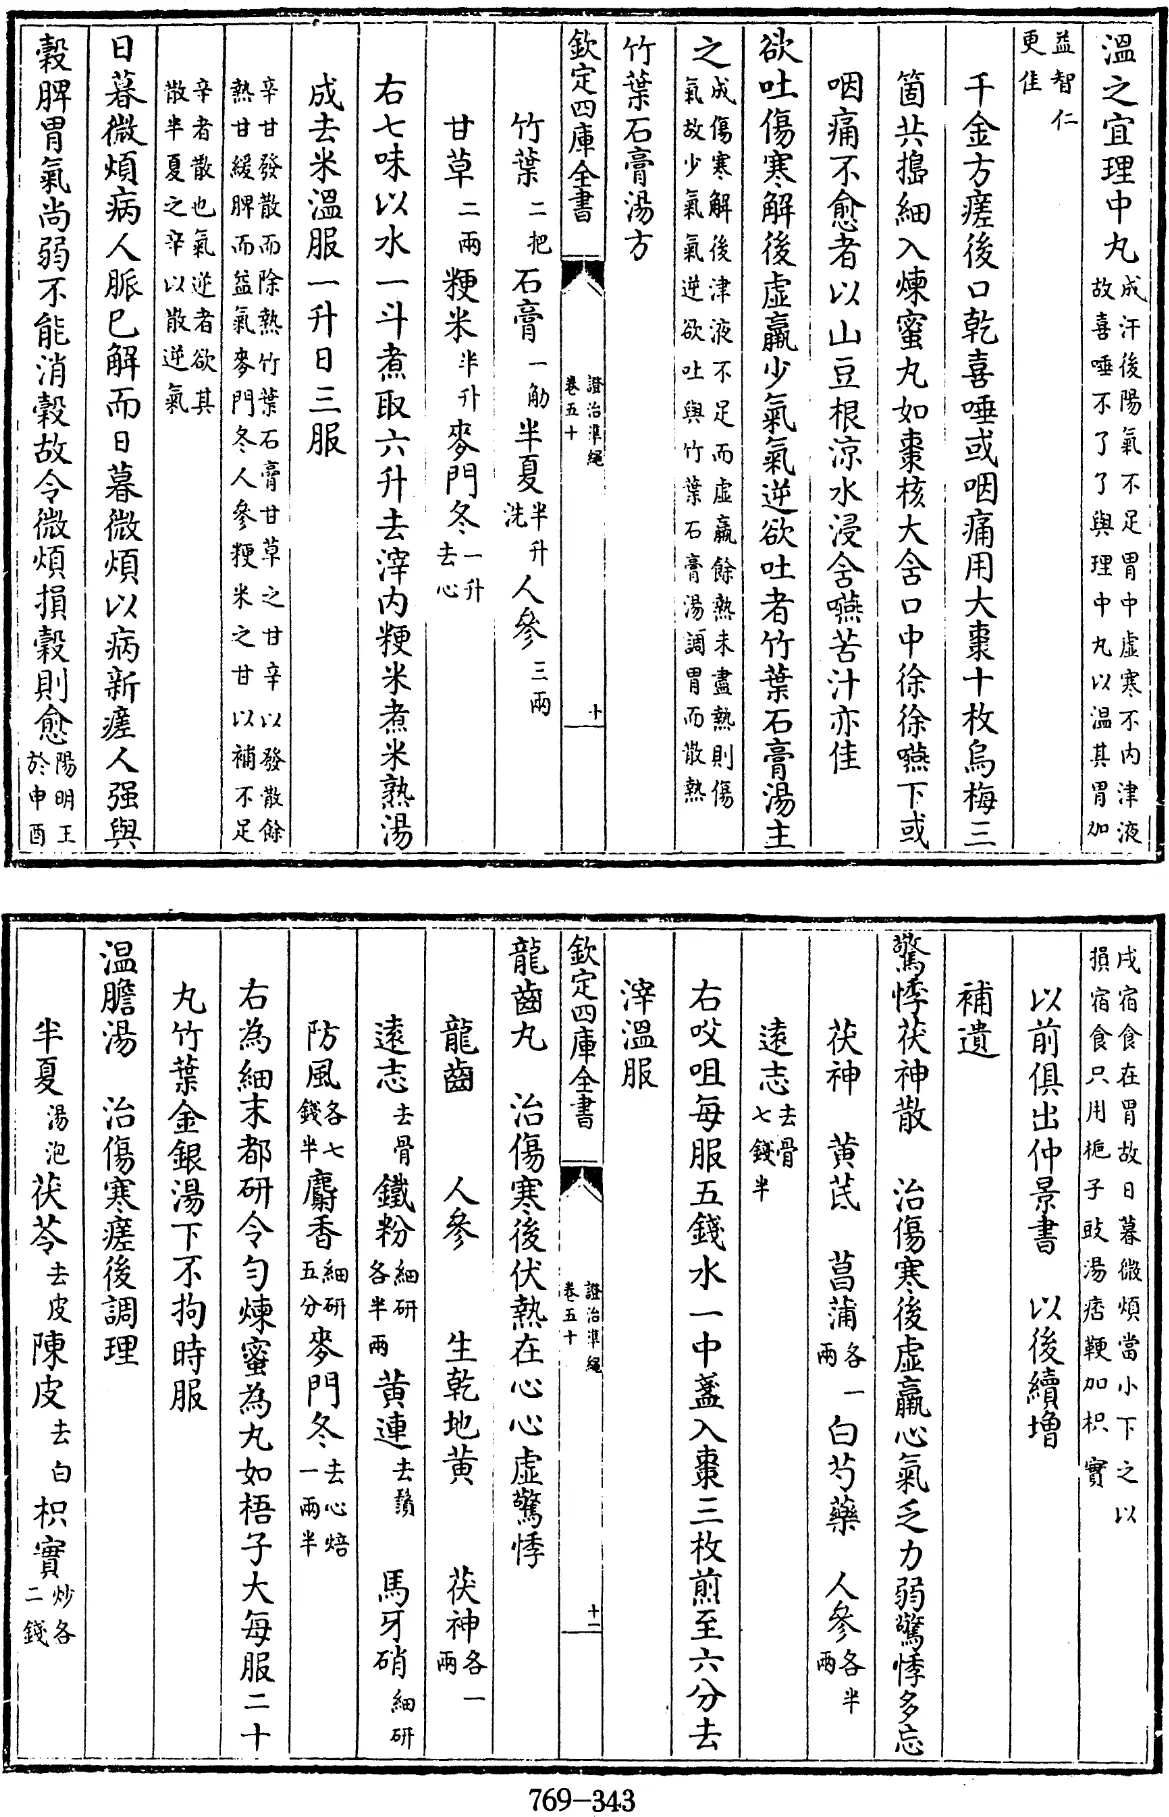 溫之宜理中丸成汗後陽氣不足胃中虛寒不内津液故喜唾不了了與理中丸以溫其胃加
益智仁更佳
千金方瘥後口乾喜唾或咽痛用大棗十枚烏梅三
箇共搗細入煉蜜丸如棗核大含口中徐徐嚥下或
咽痛不愈者以山豆根涼水浸含嚥苦汁亦佳
欲吐傷寒解後虛羸少氣氣逆欲吐者竹葉石膏湯主
之成傷寒解後津液不足而虛羸餘熱未盡熱則傷氣故少氣氣逆欲吐與竹葉石膏湯調胃而散熱
竹葉石膏湯方
欽定四庫全書 證治準繩卷五十 十
竹葉二把 石膏一觔 半夏半升洗 人參三兩
甘草二兩 粳米半升 麥門冬一升去心
右七味以水一斗煮取六升去滓内粳米煮米熟湯
成去米溫服一升日三服
辛甘發散而除熱竹葉石膏甘草之甘辛以發散餘熱甘緩脾而益氣麥門冬人參粳米之甘以補不足
辛者散也氣逆者欲其散半夏之辛以散逆氣
日暮微煩病人脈已解而日暮微煩以病新瘥人强與
穀脾胃氣尚弱不能消穀故令微煩損穀則愈陽明王於申酉
戌宿食在胃故日暮微煩當小下之以損宿食只用梔子豉湯痞鞕加枳實
以前俱出仲景書 以後續增
補遺
驚悸茯神散 治傷寒後虛羸心氣乏力弱驚悸多忘
茯神 黄芪 菖蒲各一兩 白芍藥 人參各半兩
遠志去骨七錢半
右㕮咀每服五錢水一中盞入棗三枚煎至六分去
滓溫服
欽定四庫全書 證治準繩卷五十 十一
龍齒丸 治傷寒後伏熱在心心虛驚悸
龍齒 人參 生乾地黄 茯神各一兩
遠志去骨 鐵粉細研各半兩 黄連去鬚 馬牙硝細研
防風各七錢半 麝香細研五分 麥門冬去心焙一兩半
右為細末都研令勻煉蜜為丸如梧子大每服二十
丸竹葉金銀湯下不拘時服
温膽湯 治傷寒瘥後調理
半夏湯泡 茯苓去皮 陳皮去白 枳實炒各二錢
769-343